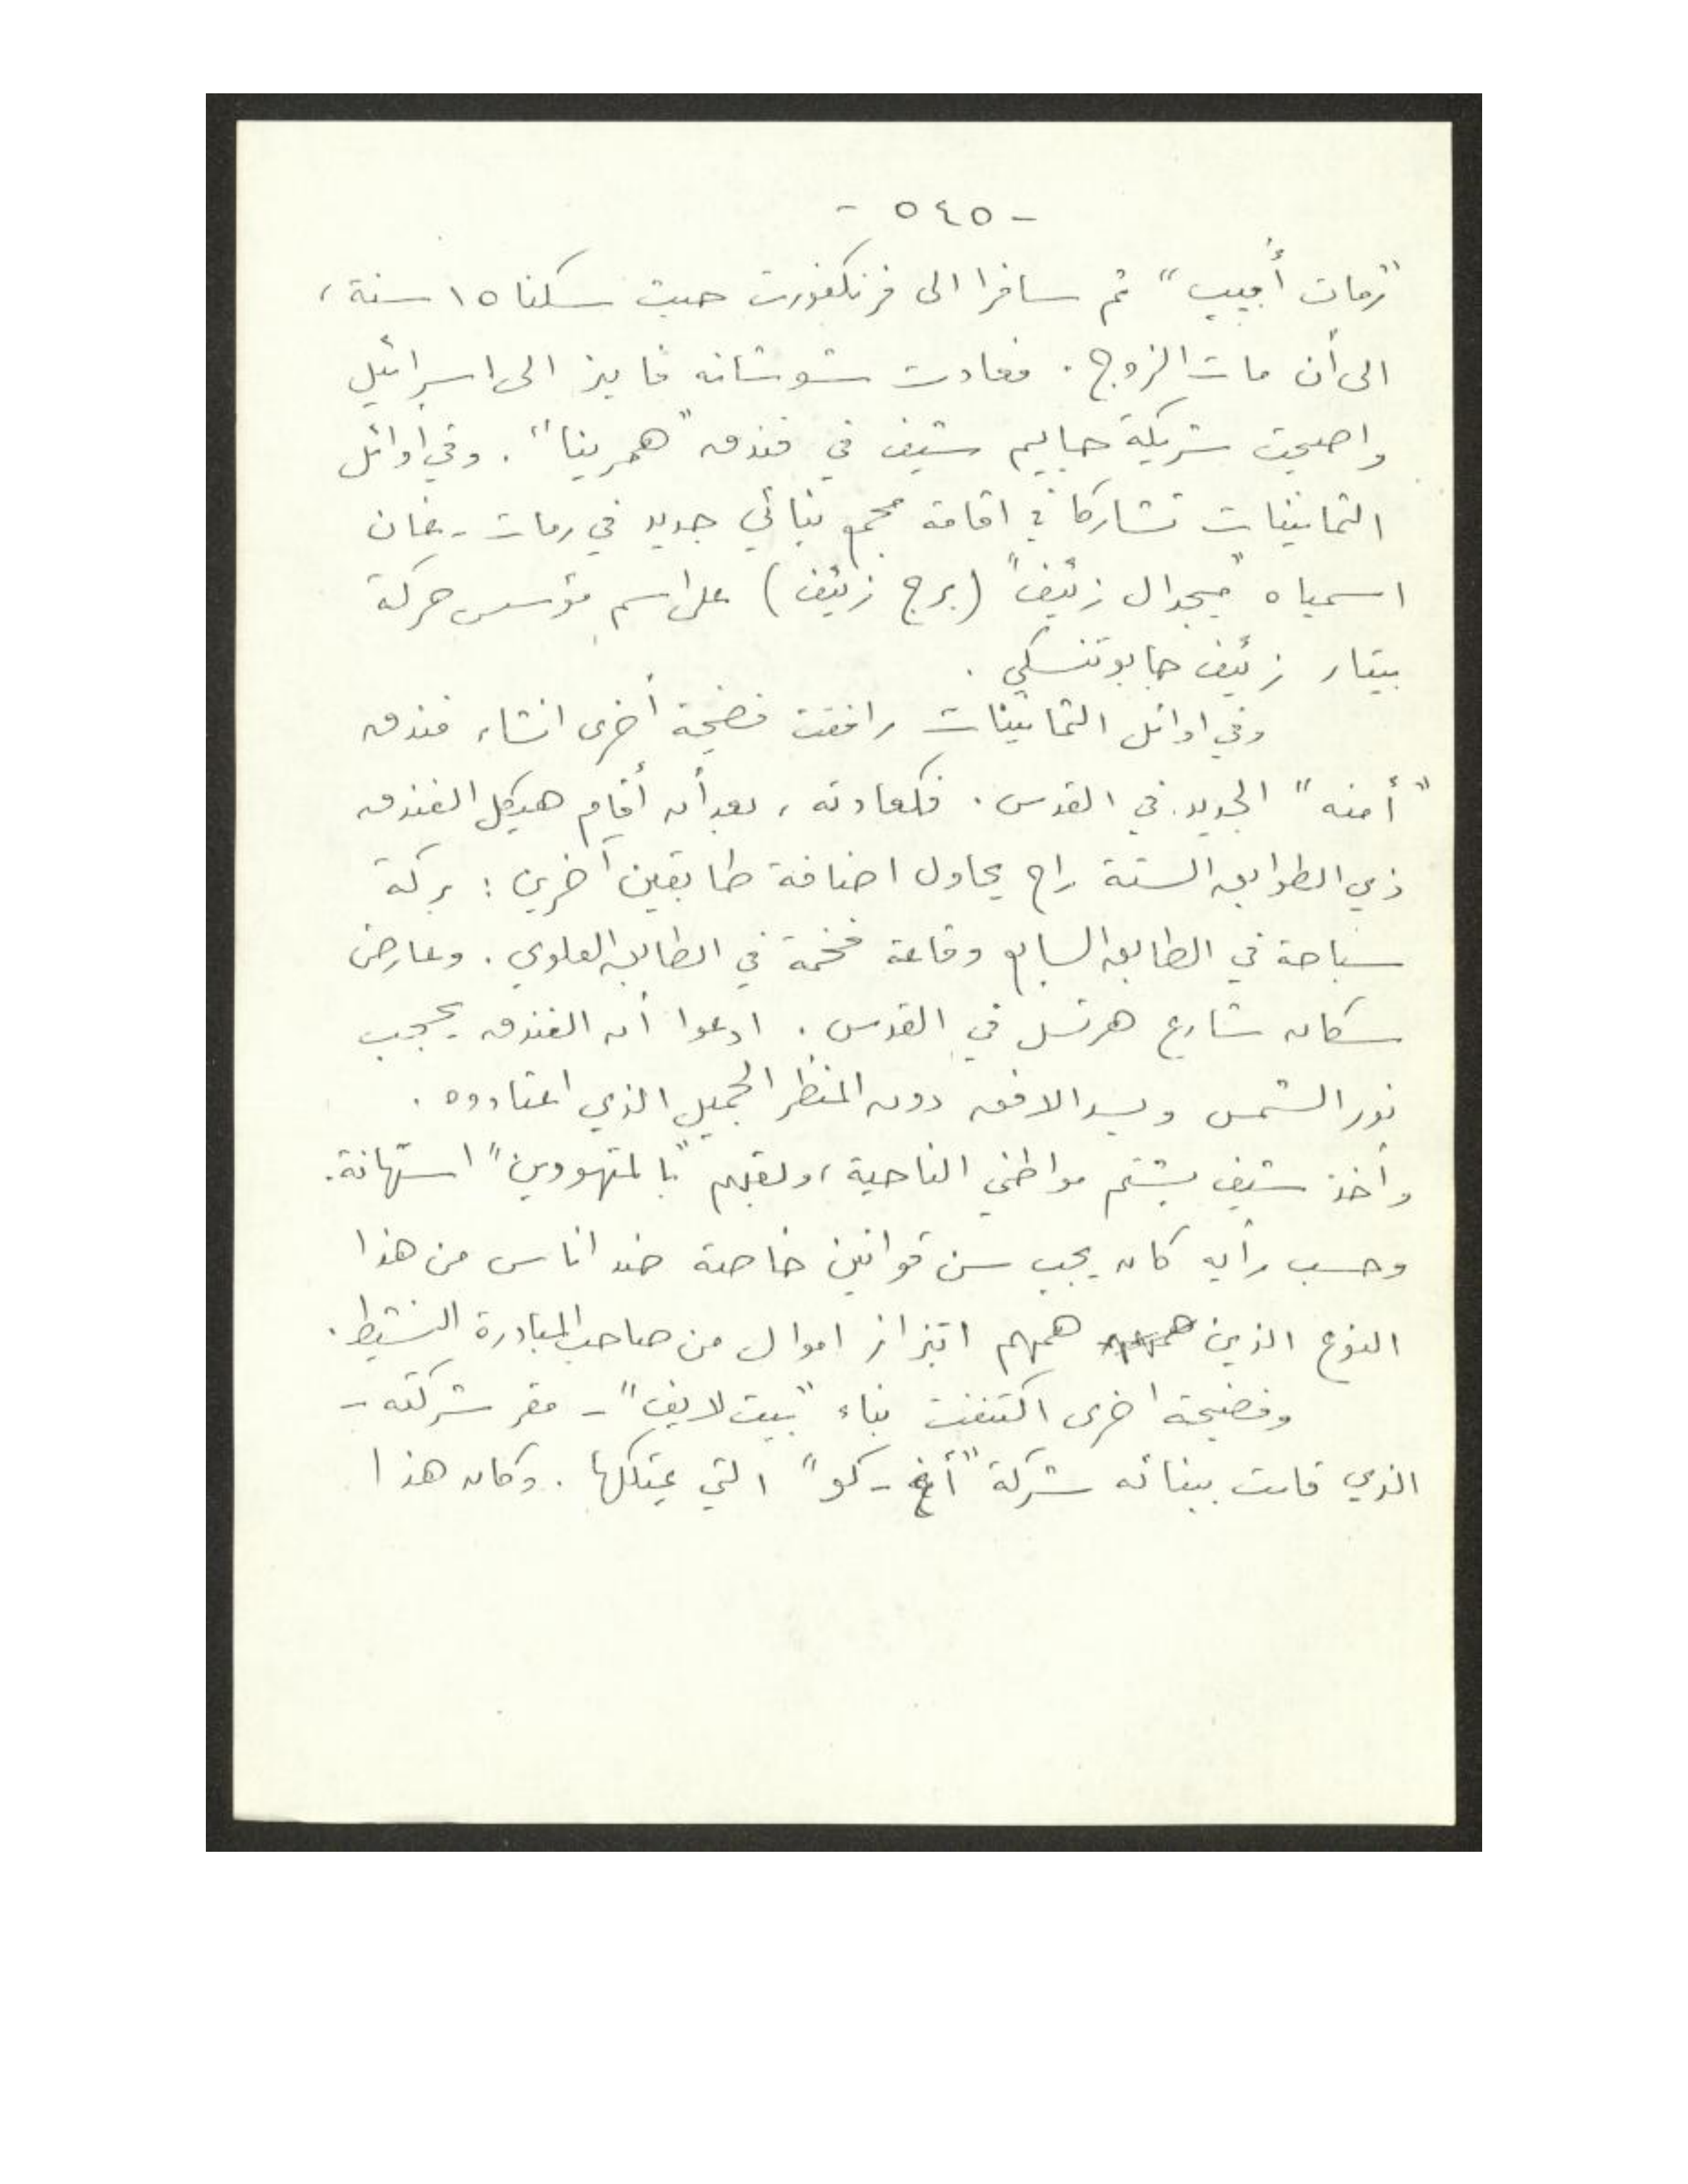 - ٥٤٥ -
"رمات أبيب" ثم سافرا الى فرنكفورت حيث سكنا ١٥ سنة،
الى أن مات الزوج. فعادت شوشانه فايز الى اسرائيل
واصبحت شريكة حاييم شيف في فندق "همرينا". وفي اوائل
الثمانينات تشاركا في اقامة مجمع بنائي جديد في رمات - غان
اسمياه "ميجدال زئيف" (برج زئيف) على اسم مؤسس حركة
بيتار زئيف جابوتنسكي.
وفي اوائل الثمانينات رافقت فضيحة أخرى انشاء فندق
"أمنه" الجديد في القدس. فكعادته، بعد أن أقام هيكل الفندق
ذي الطوابق الستة راح يحاول اضافة طابقين آخرين: بركة
سباحة في الطابق السابع وقاعة فخمة في الطابق العلوي. وعارض
سكان شارع هرتسل في القدس. ادعوا أن الفندق يحجب
نور الشمس ويسد الافق دون المنظر الجميل الذي اعتادوه.
وأخذ شيف يشتم مواطني الناحية، ولقبهم "بالمتهودين" استهانة.
وحسب رأيه كان يجب سن قوانين خاصة ضد اناس من هذا
النوع الذين همهم ابتزاز اموال من صاحب المبادرة النشيط.
وفضيحة اخرى اكتنفت بناء "بيت لايف" - مقر شركته -
الذي قامت ببنائه شركة "أغ - كو" التي يمتلكها. وكان هذا